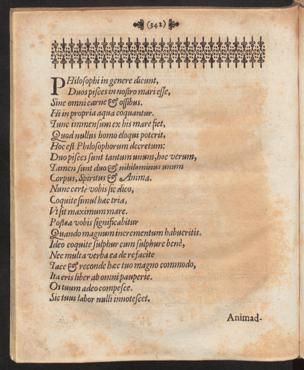 (342)
PHilosophi in genere dicunt,
Duos pisces in nostro mari esse,
Sine omni carne & ossibus.
Hi in propria aqua coquantur.
Tunc immensum ex his mare fiet,
Quod nullus homo eloqui poterit,
Hoc est Philosophorum decretum:
Duo pisces sunt tantum unum, hoc verum,
Tamen sunt duo & nihilominus unum
Corpus, Spiritus & Anima.
Nunc certè vobis sic dico,
Coquite simul hæc tria,
Ut sit maximum mare.
Postea vobis significabitur
Quando magnum incrementum habueritis.
Ideo coquite sulphur cum sulphure benè,
Nec multa verba ea de re facite
Tace & reconde hæc tuo magno commodo,
Ita eris liber ab omni pauperie.
Os tuum adeo compesce.
Sic tuus labor nulli innotescet.
Animad-